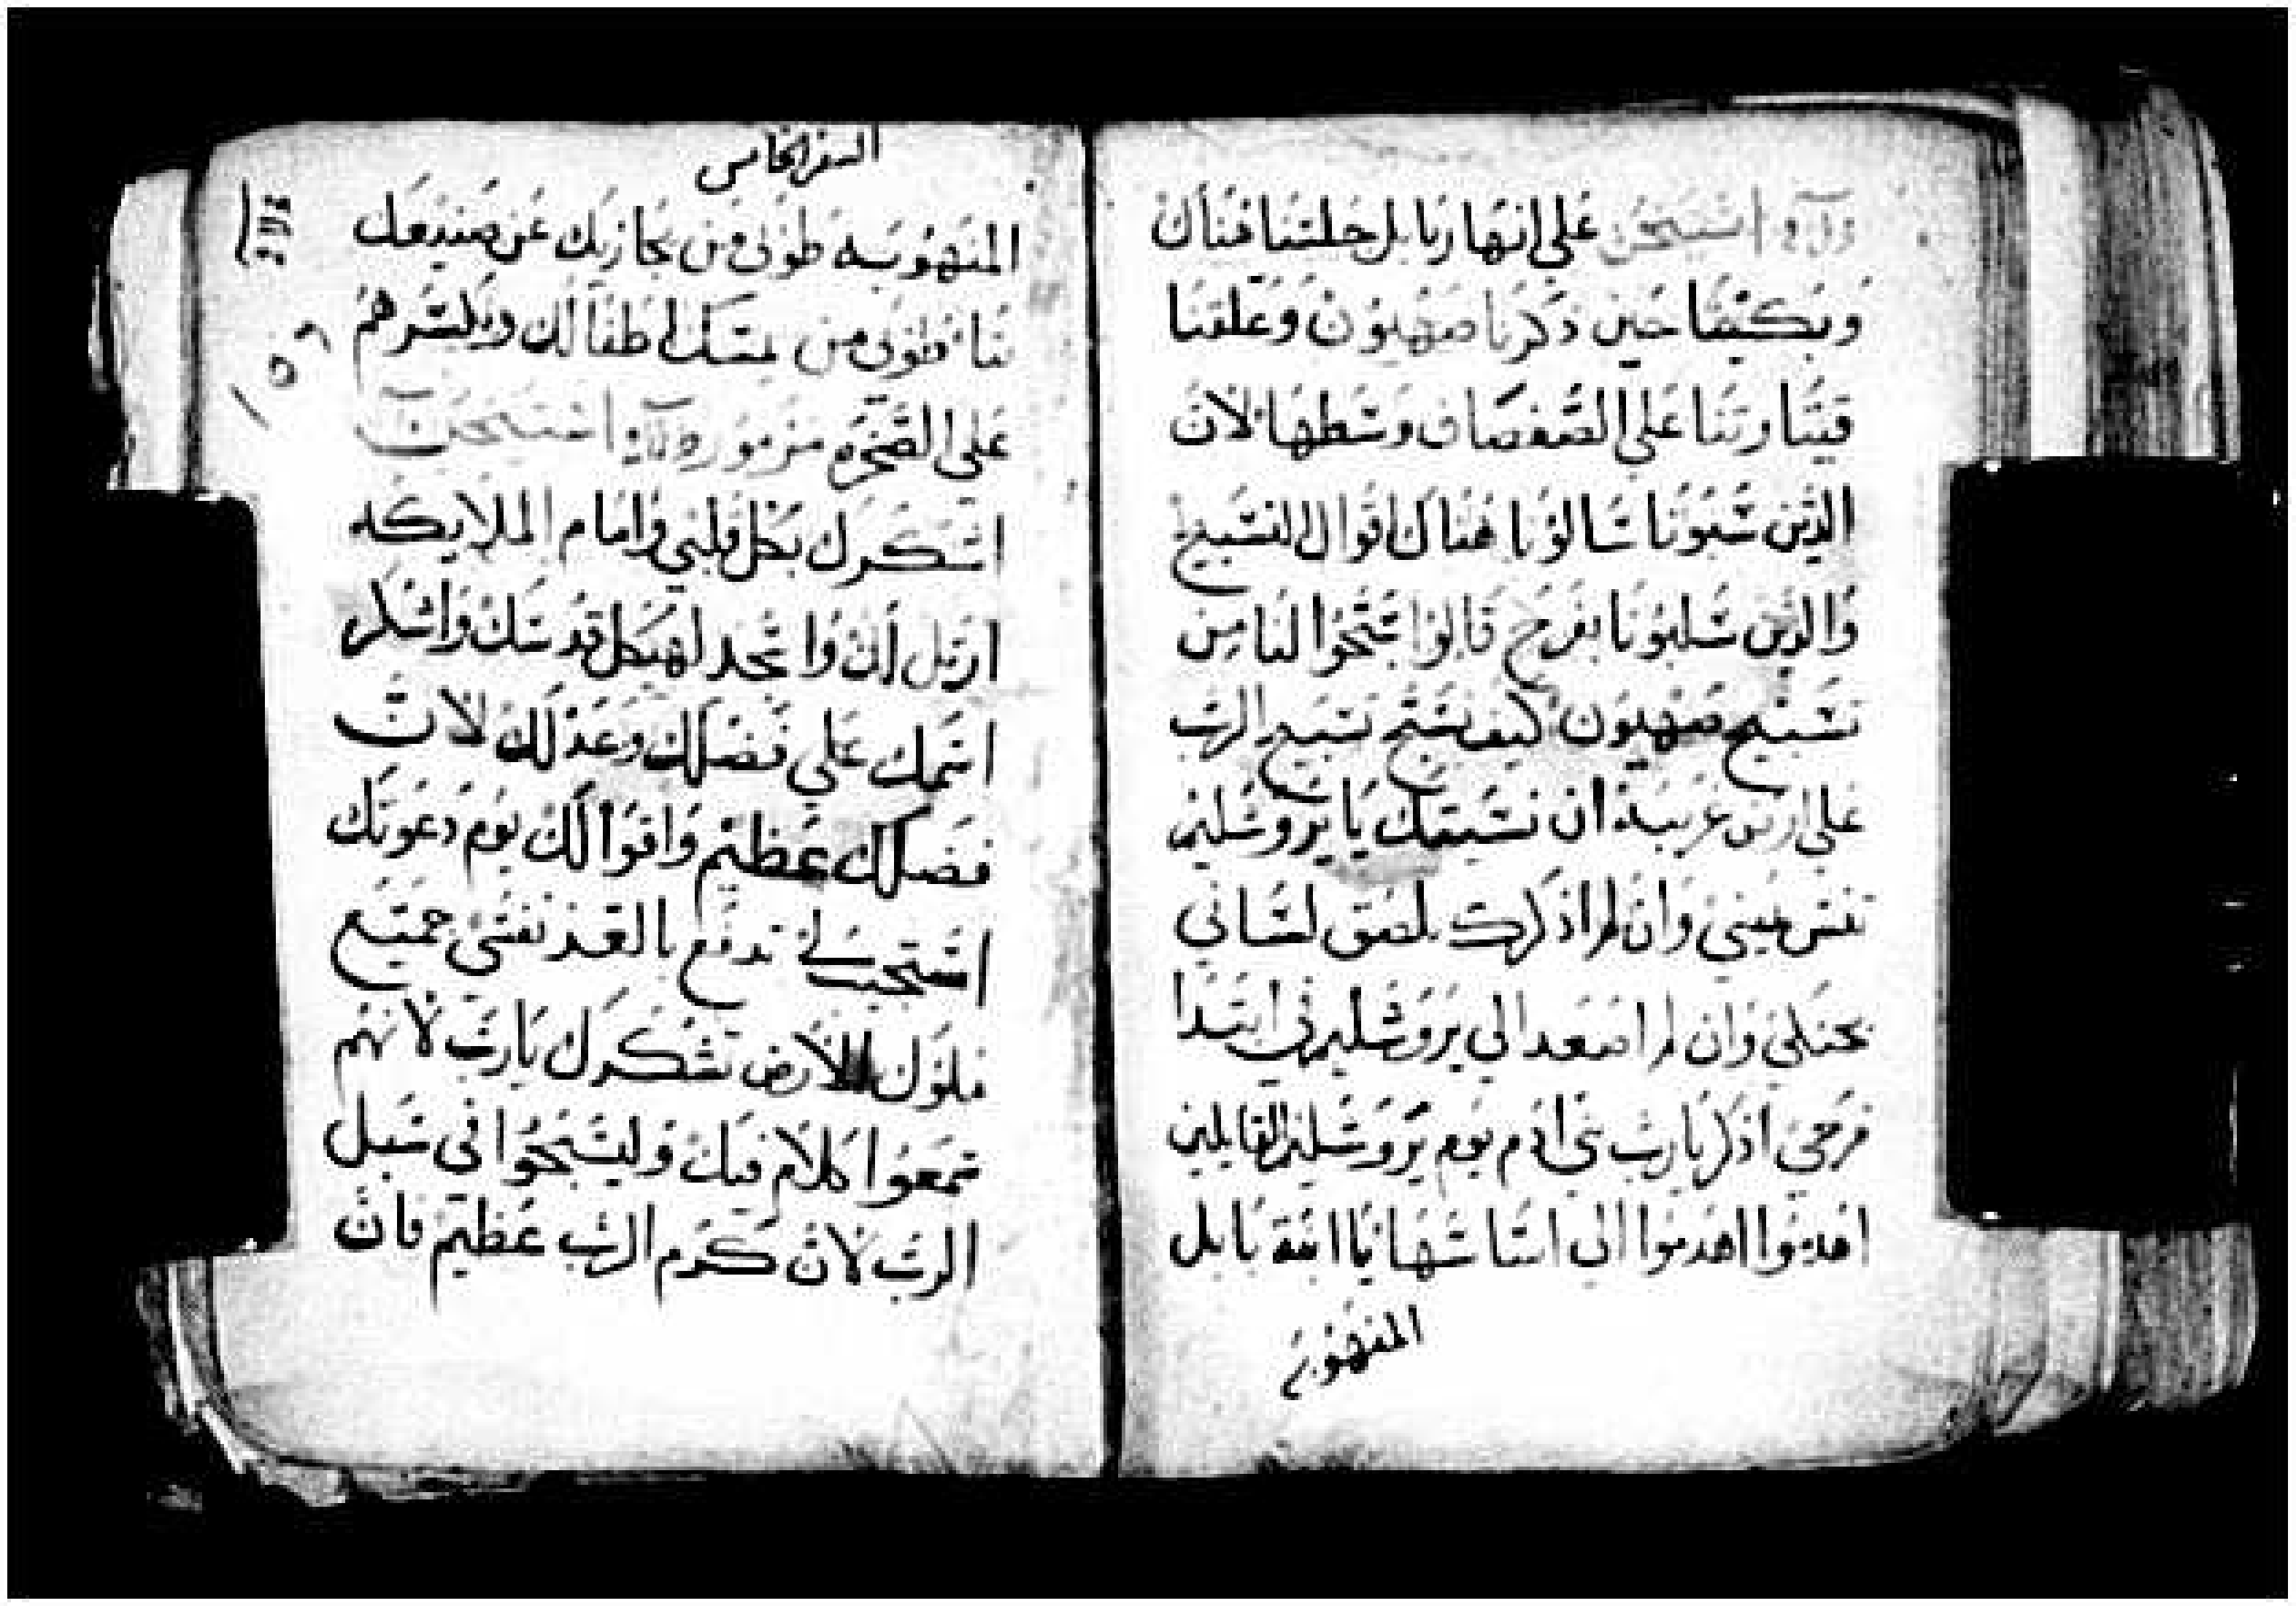 استيخن علي انهار بابل جلسنا هناك
وبكينا حين ذكرنا صهيون وعلقنا
قيتاراتنا علي الصفصاف وسطها لان
الذين سبونا سالونا هناك اقوال التسبيح
والذين سلبونا بفرح قالوا سبحوا لنا من
تسبيح صهيون كيف نسبح تسبيح الرب
علي ارض غريبة ان نسيتك يا يروشليم
تنس يميني وان لم اذكرك يلصق لساني
بحنكي وان لم اصعد الي يروشليم في ابتدا
فرحي اذكر يارب بني ادم يوم يروشليم القايلين
اهدموا اهدموا الي اساساتها يا ابنة بابل
المنهوبه
السفر الخامس
المنهوبه طوبي من يجازيك عن صنيعك
بنا طوبي من يمسك اطفالك ويكسرهم
علي الصخره مزمور استيخن
اشكرك بكل قلبي وامام الملايكه
ارتل لك واسجد لهيكل قدسك واشكر
اسمك علي فضلك وعدلك لان
فضلك عظيم واقوالك يوم دعوتك
استجب لي تدفع بالعز نفسي جميع
ملوك الارض تشكرك يارب لانهم
سمعوا كلام فيك وليسبحوا في سبل
الرب لان كرم الرب عظيم فان